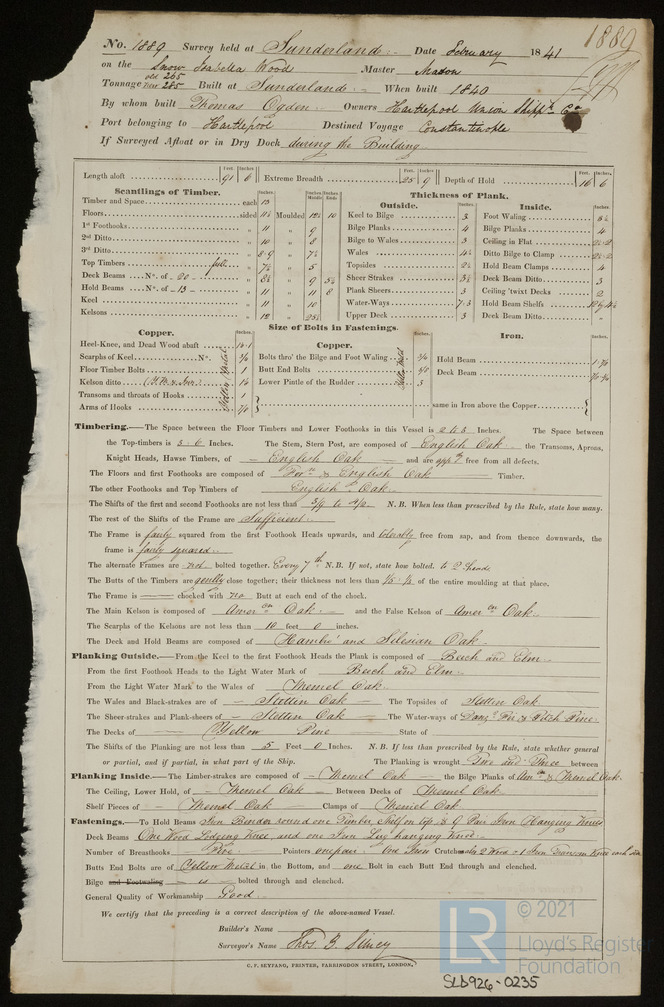 1889
No. 1889 Survey held at Sunderland Date February 1841
on the Snow Isabella Wood Master Mason
Tonnage old 265 New 285 Built at Sunderland When built 1840
By whom built Thomas Ogden Owners Hartlepool Union Shipp.g Co
Port belonging to Hartlepool Destined Voyage Constantinople
If Surveyed Afloat or in Dry Dock during the Building
Feet. Inches Feet. Inches Feet. Inches
Length aloft 91 6 Extreme Breadth 25 9 Depth of Hold 16 6
Scantlings of Timber. Inches Inches Middle Inches Ends
Timber and Space each 13
Floors sided 11½ Moulded 12½ 10
1st Foothooks " 11 " 9
2nd Ditto " 10 " 8
3rd Ditto " 8.9 " 7½
Top Timbers " 7½ " 5
Deck Beams No. of - 20 - " 8½ " 9 5½
Hold Beams No. of - 13 - " 11 " 11 8
Keel " 11 " 10
Kelsons " 12 "
Thickness of Plank.
Outside. Inches
Keel to Bilge 3
Bilge Planks 4
Bilge to Wales 3
Wales 4½
Topsides 2½
Sheer Strakes 3½
Plank Sheers 3
Water-Ways 7.3
Upper Deck 3
Inside. Inches
Foot Waling
Bilge Planks 4
Ceiling in Flat
Ditto Bilge to Clamp
Hold Beam Clamps 4
Deck Beam Ditto 3
Ceiling 'twixt Decks 2
Hold Beam Shelfs
Deck Beam Ditto "
Size of Bolts in Fastenings.
Copper. Inches
Heel-Knee, and Dead Wood abaft
Scarphs of Keel No.
Floor Timber Bolts 1
Kelson ditto 1
Transoms and throats of Hooks 1
Arms of Hooks
Yellow Metal
Copper. Inches
Bolts thro' the Bilge and Foot Waling
Butt End Bolts
Lower Pintle of the Rudder 3
Yellow Metal
Iron. Inches
Hold Beam
Deck Beam
same in Iron above the Copper
Timbering.—The Space between the Floor Timbers and Lower Foothooks in this Vessel is 2 to 3 Inches. The Space between
the Top-timbers is 3.6 Inches. The Stem, Stern Post, are composed of English Oak the Transoms, Aprons,
Knight Heads, Hawse Timbers, of English Oak and are app.ly free from all defects.
The Floors and first Foothooks are composed of For.n & English Oak Timber.
The other Foothooks and Top Timbers of English Oak
The Shifts of the first and second Foothooks are not less than N. B. When less than prescribed by the Rule, state how many.
The rest of the Shifts of the Frame are Sufficient
The Frame is fairly squared from the first Foothook Heads upwards, and tolerably free from sap, and from thence downwards, the
frame is fairly squared
The alternate Frames are not bolted together. Every 7th N. B. If not, state how bolted.
The Butts of the Timbers are gen'lly close together; their thickness not less than ⅓ ½ of the entire moulding at that place.
The Frame is chocked with no Butt at each end of the chock.
The Main Kelson is composed of Amer.can Oak and the False Kelson of Amer.can Oak
The Scarphs of the Kelsons are not less than 10 feet 0 inches.
The Deck and Hold Beams are composed of Hambro' and Silesian Oak
Planking Outside.—From the Keel to the first Foothook Heads the Plank is composed of Beech and Elm
From the first Foothook Heads to the Light Water Mark of Beech and Elm
From the Light Water Mark to the Wales of Memel Oak
The Wales and Black-strakes are of Stettin Oak The Topsides of Stettin Oak
The Sheer-strakes and Plank-sheers of Stettin Oak The Water-ways of Danz.c Fir & Pitch Pine
The Decks of Yellow Pine State of
The Shifts of the Planking are not less than 5 Feet 0 Inches. N. B. If less than prescribed by the Rule, state whether general
or partial, and if partial, in what part of the Ship. The Planking is wrought Two and Three between
Planking Inside.—The Limber-strakes are composed of Memel Oak the Bilge Planks of Am.can & Memel Oak
The Ceiling, Lower Hold, of Memel Oak Between Decks of Memel Oak
Shelf Pieces of Memel Oak Clamps of Memel Oak
Fastenings.—To Hold Beams Iron Binder round one Timber, Shelf on top & 9 Pair Iron Hanging Knees
Deck Beams One Wood Lodging Knee and one Iron Leg hanging Knee
Number of Breasthooks Five Pointers one pair One Iron Crutch 2 Wood & 1 Iron Transom Knee each side
Butts End Bolts are of Yellow Metal in the Bottom, and one Bolt in each Butt End through and clenched.
Bilge and Footwaling is bolted through and clenched.
General Quality of Workmanship Good
We certify that the preceding is a correct description of the above-named Vessel.
Builder's Name
Surveyor's Name Thos. B. Simey
C. F. SEYFANG, PRINTER, FARRINGDON STREET, LONDON.
LR © 2021
Lloyd's Register
Foundation
SLD926-0235